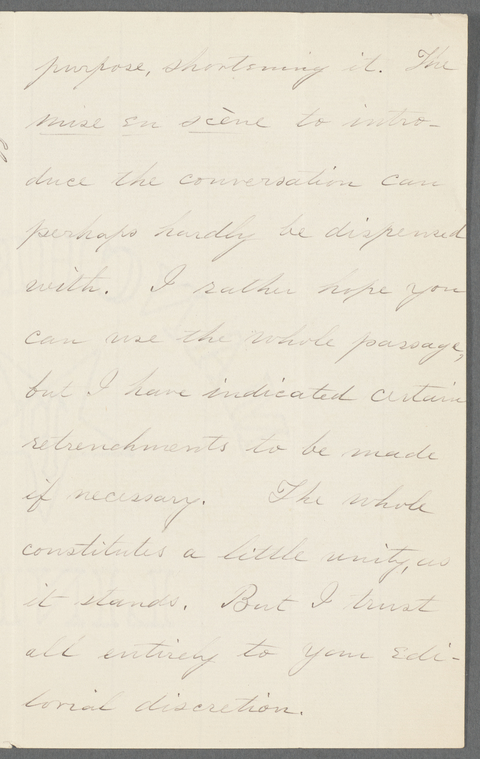 purpose, shortening it. The
mise en scène to intro-
duce the conversation can
perhaps hardly be dispensed
with. I rather hope you
can use the whole passage,
but I have indicated certain
retrenchments to be made
if necessary. The whole
constitutes a little unity, as
it stands. But I trust
all entirely to your edi-
torial discretion.